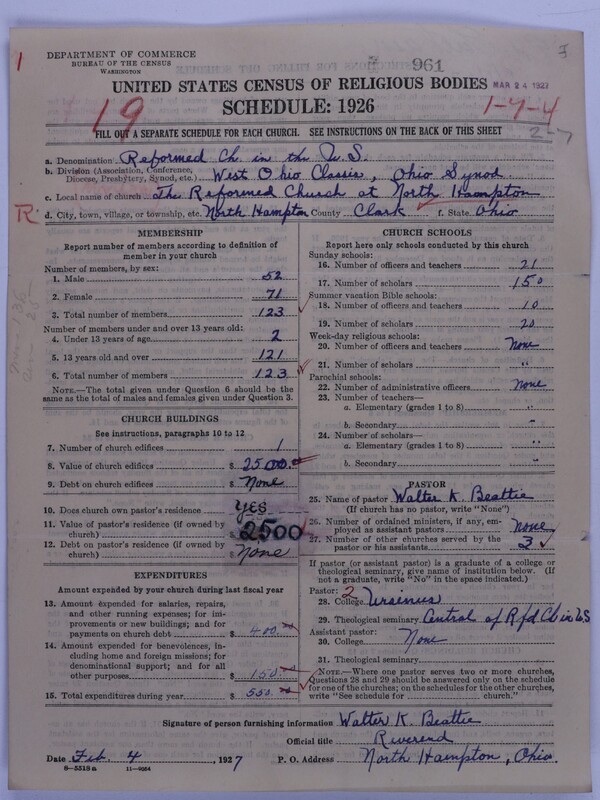 DEPARTMENT OF COMMERCE
BUREAU OF THE CENSUS
WASHINGTON
961
UNITED STATES CENSUS OF RELIGIOUS BODIES
MAR 24 1927
SCHEDULE: 1926
19
1-7-4
2-7
FILL OUT A SEPARATE SCHEDULE FOR EACH CHURCH. SEE INSTRUCTIONS ON THE BACK OF THIS SHEET
a. Denomination Reformed Ch. in the U.S.
b. Division (Association, Conference, Diocese, Presbytery, Synod, etc.) West Ohio Classis, Ohio Synod.
c. Local name of church The Reformed Church at North Hampton
R. d. City, town, village, or township, etc. North Hampton County Clark f. State Ohio
MEMBERSHIP
Report number of members according to definition of
member in your church
Number of members, by sex:
1. Male 52
2. Female 71
3. Total number of members 123
Number of members under and over 13 years old:
4. Under 13 years of age 2
5. 13 years old and over 121
6. Total number of members 123
NOTE.—The total given under Question 6 should be
same as the total of males and females given under Question 3.
CHURCH BUILDINGS
See instructions, paragraphs 10 to 12
7. Number of church edifices 1
8. Value of church edifices $ 2500.
9. Debt on church edifices $ None
10. Does church own pastor's residence YES
11. Value of pastor's residence (if owned by
church) $ 2500
12. Debt on pastor's residence (if owned by
church) $ None
EXPENDITURES
Amount expended by your church during last fiscal year
13. Amount expended for salaries, repairs,
and other running expenses; for im-
provements or new buildings; and for
payments on church debt $ 400.
14. Amount expended for benevolences, in-
cluding home and foreign missions; for
denominational support; and for all
other purposes 150.
15. Total expenditures during year $ 550.
CHURCH SCHOOLS
Report here only schools conducted by this church
Sunday schools:
16. Number of officers and teachers 21
17. Number of scholars 150
Summer vacation Bible schools:
18. Number of officers and teachers 10
19. Number of scholars 20
Week-day religious schools:
20. Number of officers and teachers None
21. Number of scholars "
Parochial schools:
22. Number of administrative officers None
23. Number of teachers—
a. Elementary (grades 1 to 8) "
b. Secondary "
24. Number of scholars—
a. Elementary (grades 1 to 8) "
b. Secondary "
PASTOR
25. Name of pastor Walter K. Beattie
(If church has no pastor, write "None")
26. Number of ordained ministers, if any, em-
ployed as assistant pastors None
27. Number of other churches served by the
pastor or his assistants 3
If pastor (or assistant pastor) is a graduate of a college or
theological seminary, give name of institution below. (If
not a graduate, write "No" in the space indicated.)
Pastor: 2
28. College Ursinus
29. Theological seminary Central of Rfd Ch in U.S
Assistant pastor:
30. College None
31. Theological seminary
NOTE.—Where one pastor serves two or more churches,
Questions 28 and 29 should be answered only on the schedule
for one of the churches; on the schedules for the other churches,
write "See schedule for church."
Signature of person furnishing information Walter K. Beattie
Official title Reverend
Date Feb. 4, 1927 P. O. Address North Hampton, Ohio.
6—5518 a 11—9054